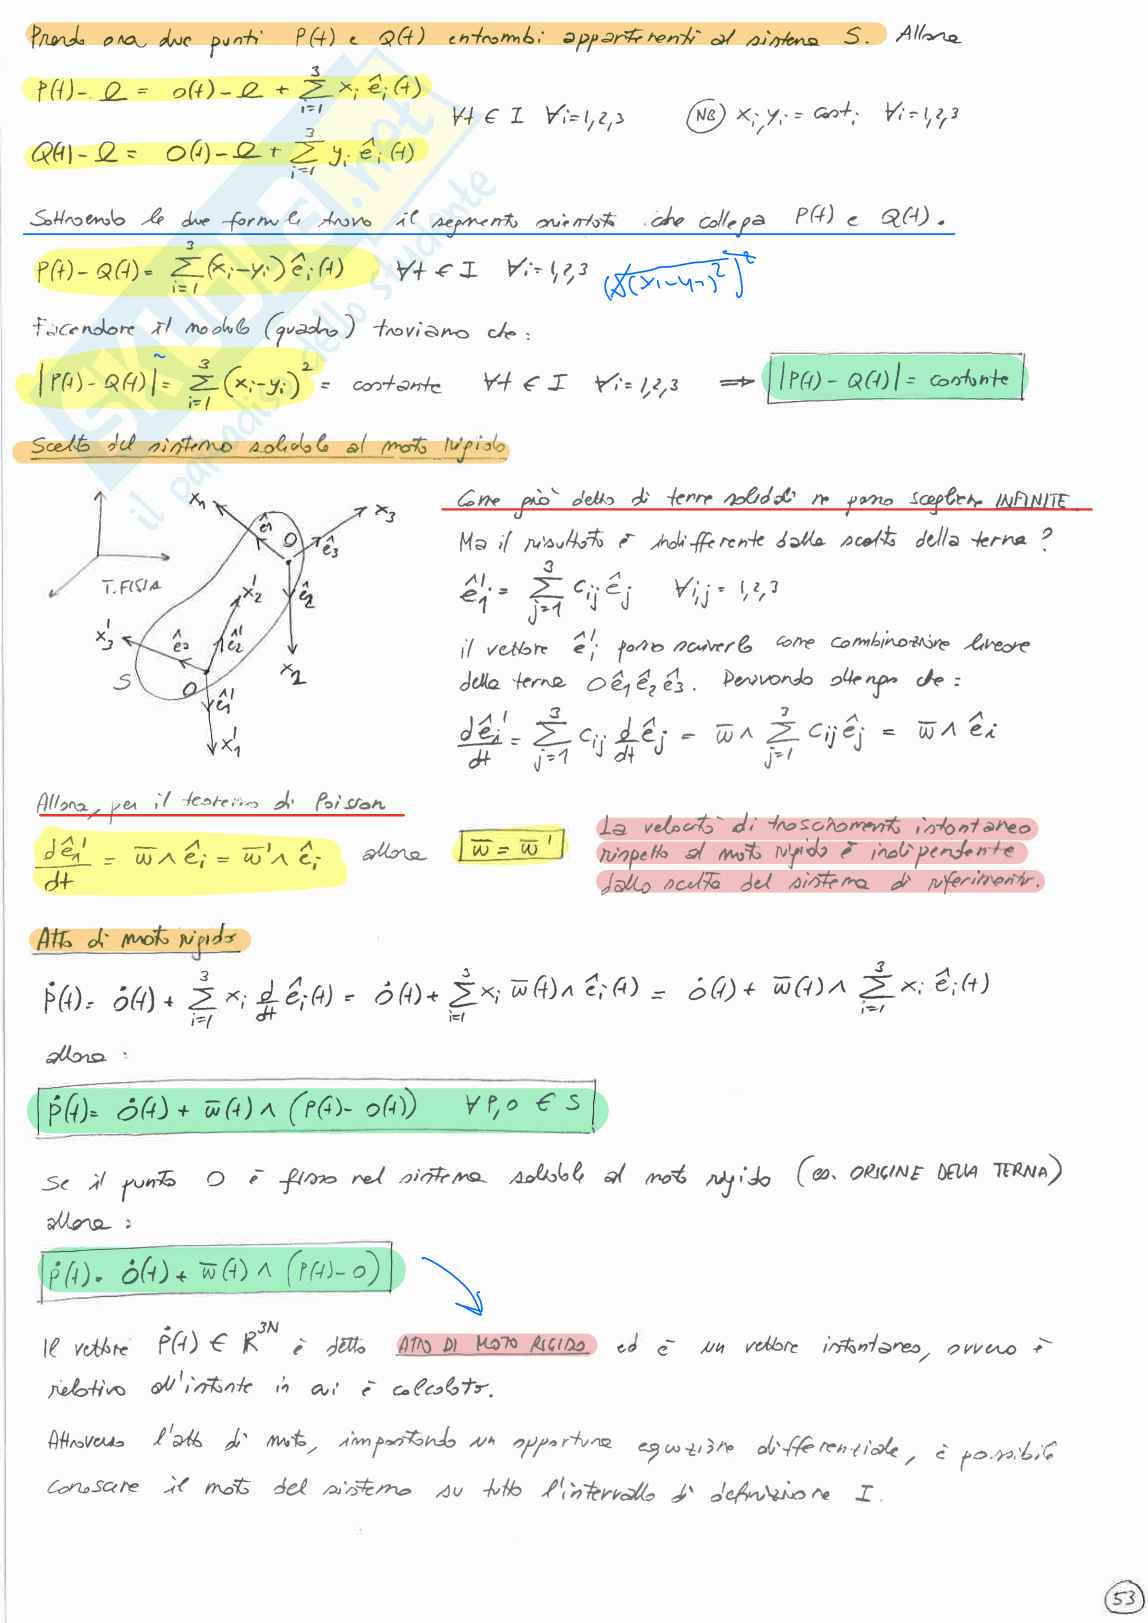 Prendo ora due punti P(t) e Q(t) entrambi appartenenti al sistema S. Allora
P(t) - Ω = O(t) - Ω + Σ_{i=1}^{3} x_i ê_i(t)
∀t ∈ I ∀i = 1,2,3 (NB) x_i, y_i = cost_i ∀i = 1,2,3
Q(t) - Ω = O(t) - Ω + Σ_{i=1}^{3} y_i ê_i(t)
Sottraendo le due formule trovo il segmento orientato che collega P(t) e Q(t).
P(t) - Q(t) = Σ_{i=1}^{3} (x_i - y_i) ê_i(t) ∀t ∈ I ∀i = 1,2,3
Facendone il modulo (quadro) troviamo che:
|P(t) - Q(t)| = Σ_{i=1}^{3} (x_i - y_i)² = costante ∀t ∈ I ∀i = 1,2,3 ⇒ |P(t) - Q(t)| = costante
Scelta del sistema solidale al moto rigido
Come già detto di terne solidali ne posso scegliere INFINITE.
Ma il risultato è indifferente dalla scelta della terna?
ê'_i = Σ_{j=1}^{3} c_ij ê_j ∀i,j = 1,2,3
il vettore ê'_i posso scriverlo come combinazione lineare
della terna O ê_1 ê_2 ê_3. Derivando ottengo che:
dê'_i/dt = Σ_{j=1}^{3} c_ij d/dt ê_j = w̄ ∧ Σ_{j=1}^{3} c_ij ê_j = w̄ ∧ ê_i
T. FISSA
x_1 ê_1 O ê_3 x_3
x'_2 ê_2
x'_3 ê_3 ê'_2 x_2
S O ê'_1
x'_1
Allora, per il teorema di Poisson
dê'_1/dt = w̄ ∧ ê_i = w̄' ∧ ê_i allora w̄ = w̄'
La velocità di trascinamento istantaneo
rispetto al moto rigido è indipendente
dalla scelta del sistema di riferimento.
Atto di moto rigido
Ṗ(t) = Ȯ(t) + Σ_{i=1}^{3} x_i d/dt ê_i(t) = Ȯ(t) + Σ_{i=1}^{3} x_i w̄(t) ∧ ê_i(t) = Ȯ(t) + w̄(t) ∧ Σ_{i=1}^{3} x_i ê_i(t)
allora:
Ṗ(t) = Ȯ(t) + w̄(t) ∧ (P(t) - O(t)) ∀P,O ∈ S
Se il punto O è fisso nel sistema solidale al moto rigido (es. ORIGINE DELLA TERNA)
allora:
Ṗ(t) = Ȯ(t) + w̄(t) ∧ (P(t) - O)
Il vettore Ṗ(t) ∈ R^{3N} è detto ATTO DI MOTO RIGIDO ed è un vettore istantaneo, ovvero è
relativo all'istante in cui è calcolato.
Attraverso l'atto di moto, impostando un opportuna equazione differenziale, è possibile
conoscere il moto del sistema su tutto l'intervallo di definizione I.
53
SKUOLA.net
il paradiso dello studente